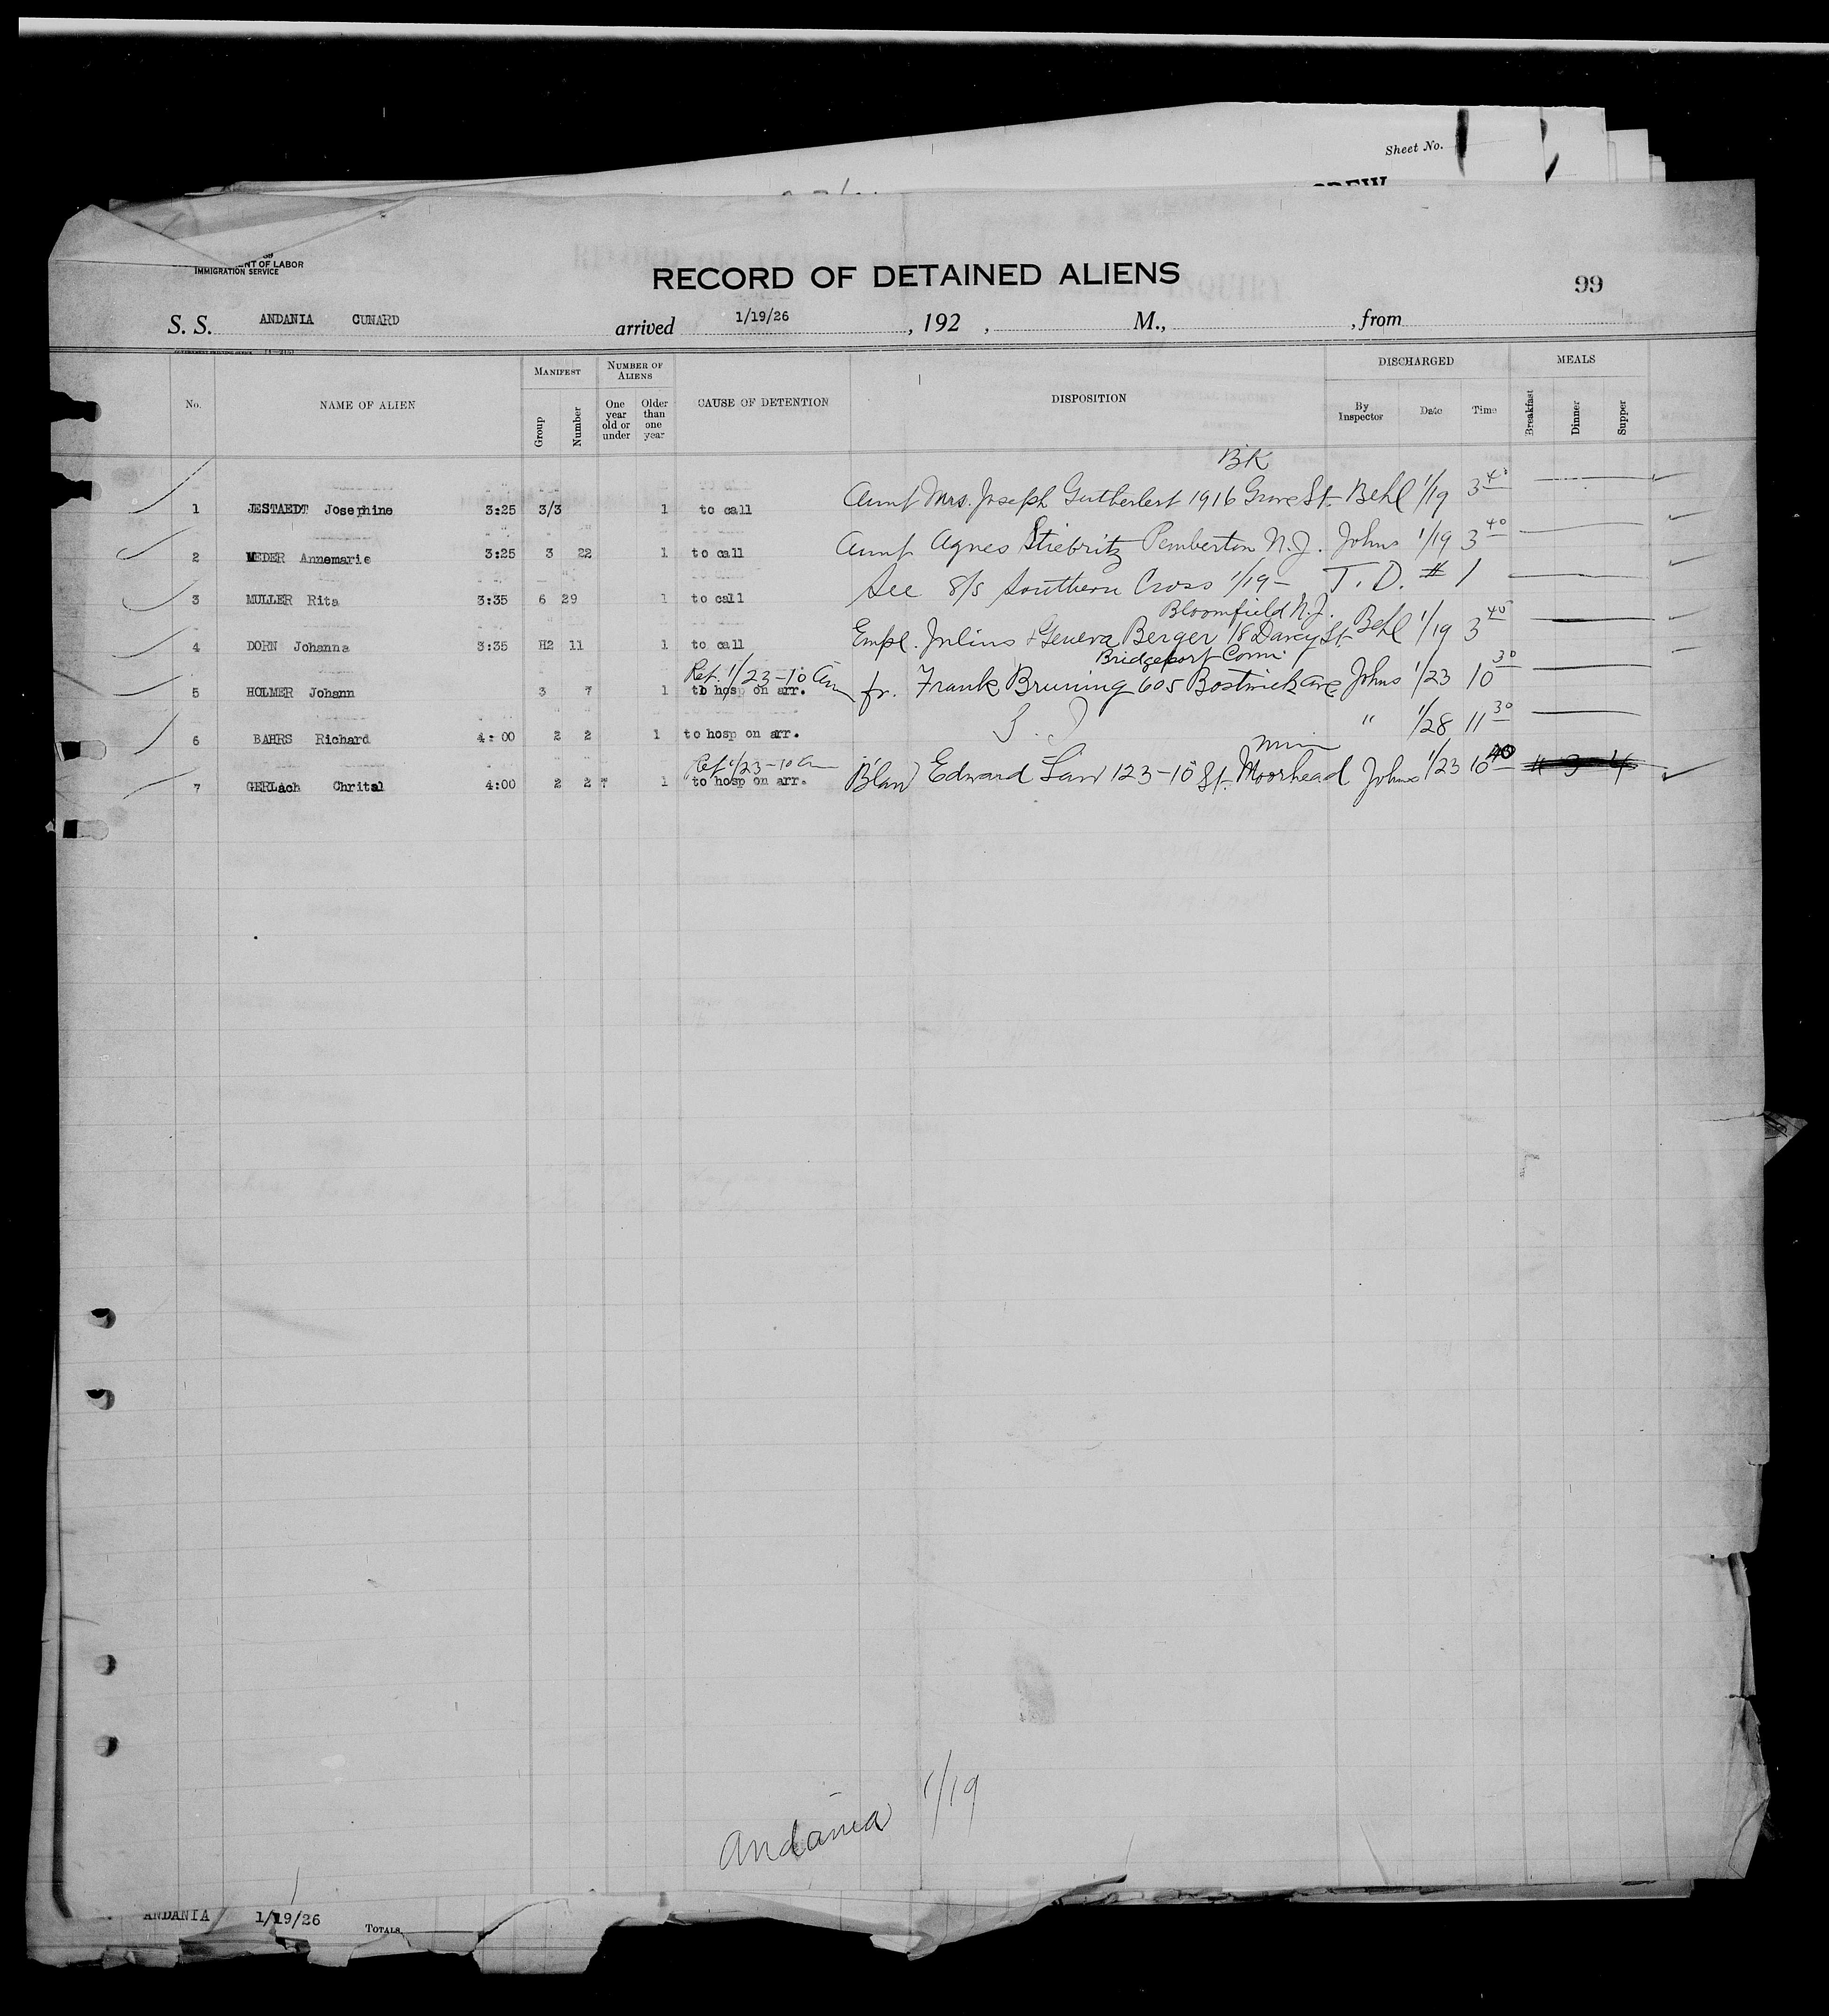 Sheet No.
CREW
NT OF LABOR
IMMIGRATION SERVICE
RECORD OF DETAINED ALIENS
99
S. S. ANDANIA CUNARD arrived 1/19/26, 192 , M., , from
No. NAME OF ALIEN MANIFEST Group Number NUMBER OF ALIENS One year old or under Older than one year CAUSE OF DETENTION DISPOSITION DISCHARGED By Inspector Date Time MEALS Breakfast Dinner Supper
BK
1 JESTAEDT Josephine 3:25 3/3 1 to call Aunt Mrs. Joseph Gutherlert 1916 Grove St. Behl 1/19 3 40
2 MEDER Annemarie 3:25 3 22 1 to call Aunt Agnes Stiebritz Pemberton N.J. Johns 1/19 3 40
3 MULLER Rita 3:35 6 29 1 to call See S/S Southern Cross 1/19 - T. D. # 1
Bloomfield N.J.
4 DORN Johanna 3:35 H2 11 1 to call Empl. Julius + Geneva Berger 18 Darcy St. Behl 1/19 3 40
Ret. 1/23-10 am Bridgeport Conn.
5 HOLMER Johann 3 7 1 to hosp on arr. fr. Frank Bruning 605 Bostwick ave Johns 1/23 10 30
6 BAHRS Richard 4:00 2 2 1 to hosp on arr. " 1/28 11 30
Ret 1/23-10 am Minn
7 GERLach Chrital 4:00 2 27 1 to hosp on arr. Edward Law 123-10 St. Moorhead Johns 1/23 10 40
Andania 1/19
ANDANIA 1/19/26 TOTALS